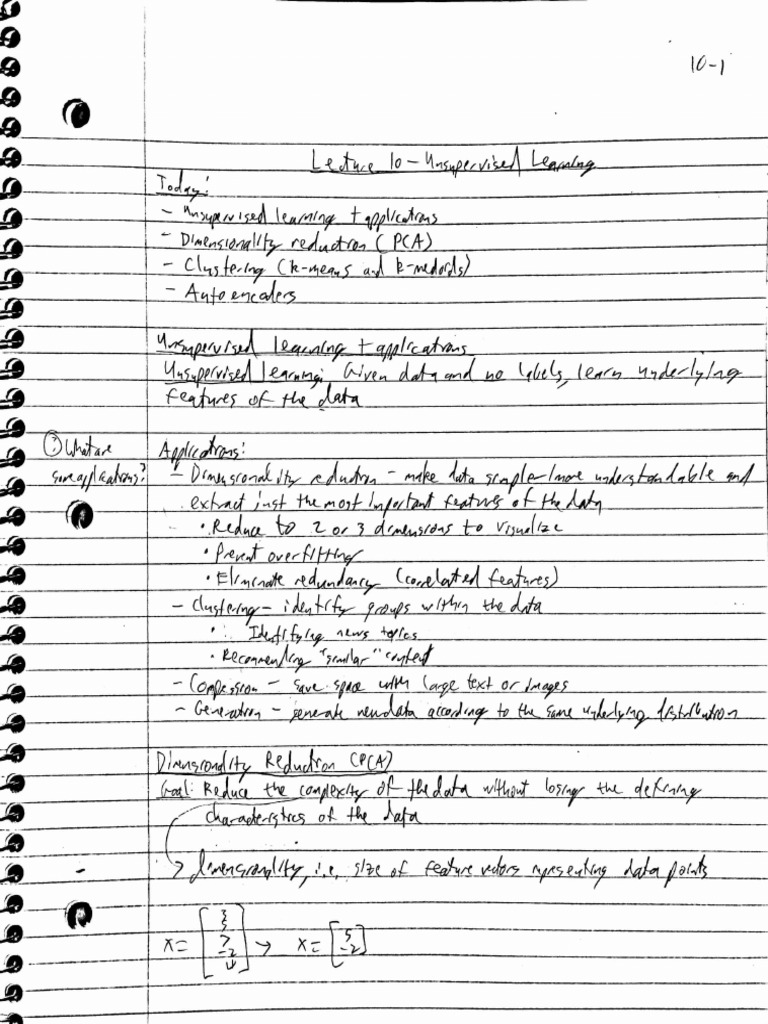 10-1
Lecture 10 - Unsupervised Learning
Today:
- Unsupervised learning + applications
- Dimensionality reduction (PCA)
- Clustering (k-means and k-medoids)
- Autoencoders
Unsupervised learning + applications
Unsupervised learning: Given data and no labels, learn underlying
features of the data
? What are
some applications?
Applications:
- Dimensionality reduction - make data simpler/more understandable and
extract just the most important features of the data
• Reduce to 2 or 3 dimensions to visualize
• Prevent overfitting
• Eliminate redundancy (correlated features)
- Clustering - identify groups within the data
• Identifying news topics
• Recommending "similar" content
- Compression - save space with large text or images
- Generation - generate new data according to the same underlying distribution
Dimensionality Reduction (PCA)
Goal: Reduce the complexity of the data without losing the defining
characteristics of the data
→ dimensionality, i.e. size of feature vectors representing data points
x = [ 7 -2 ] → x = [ 5 -2 ]